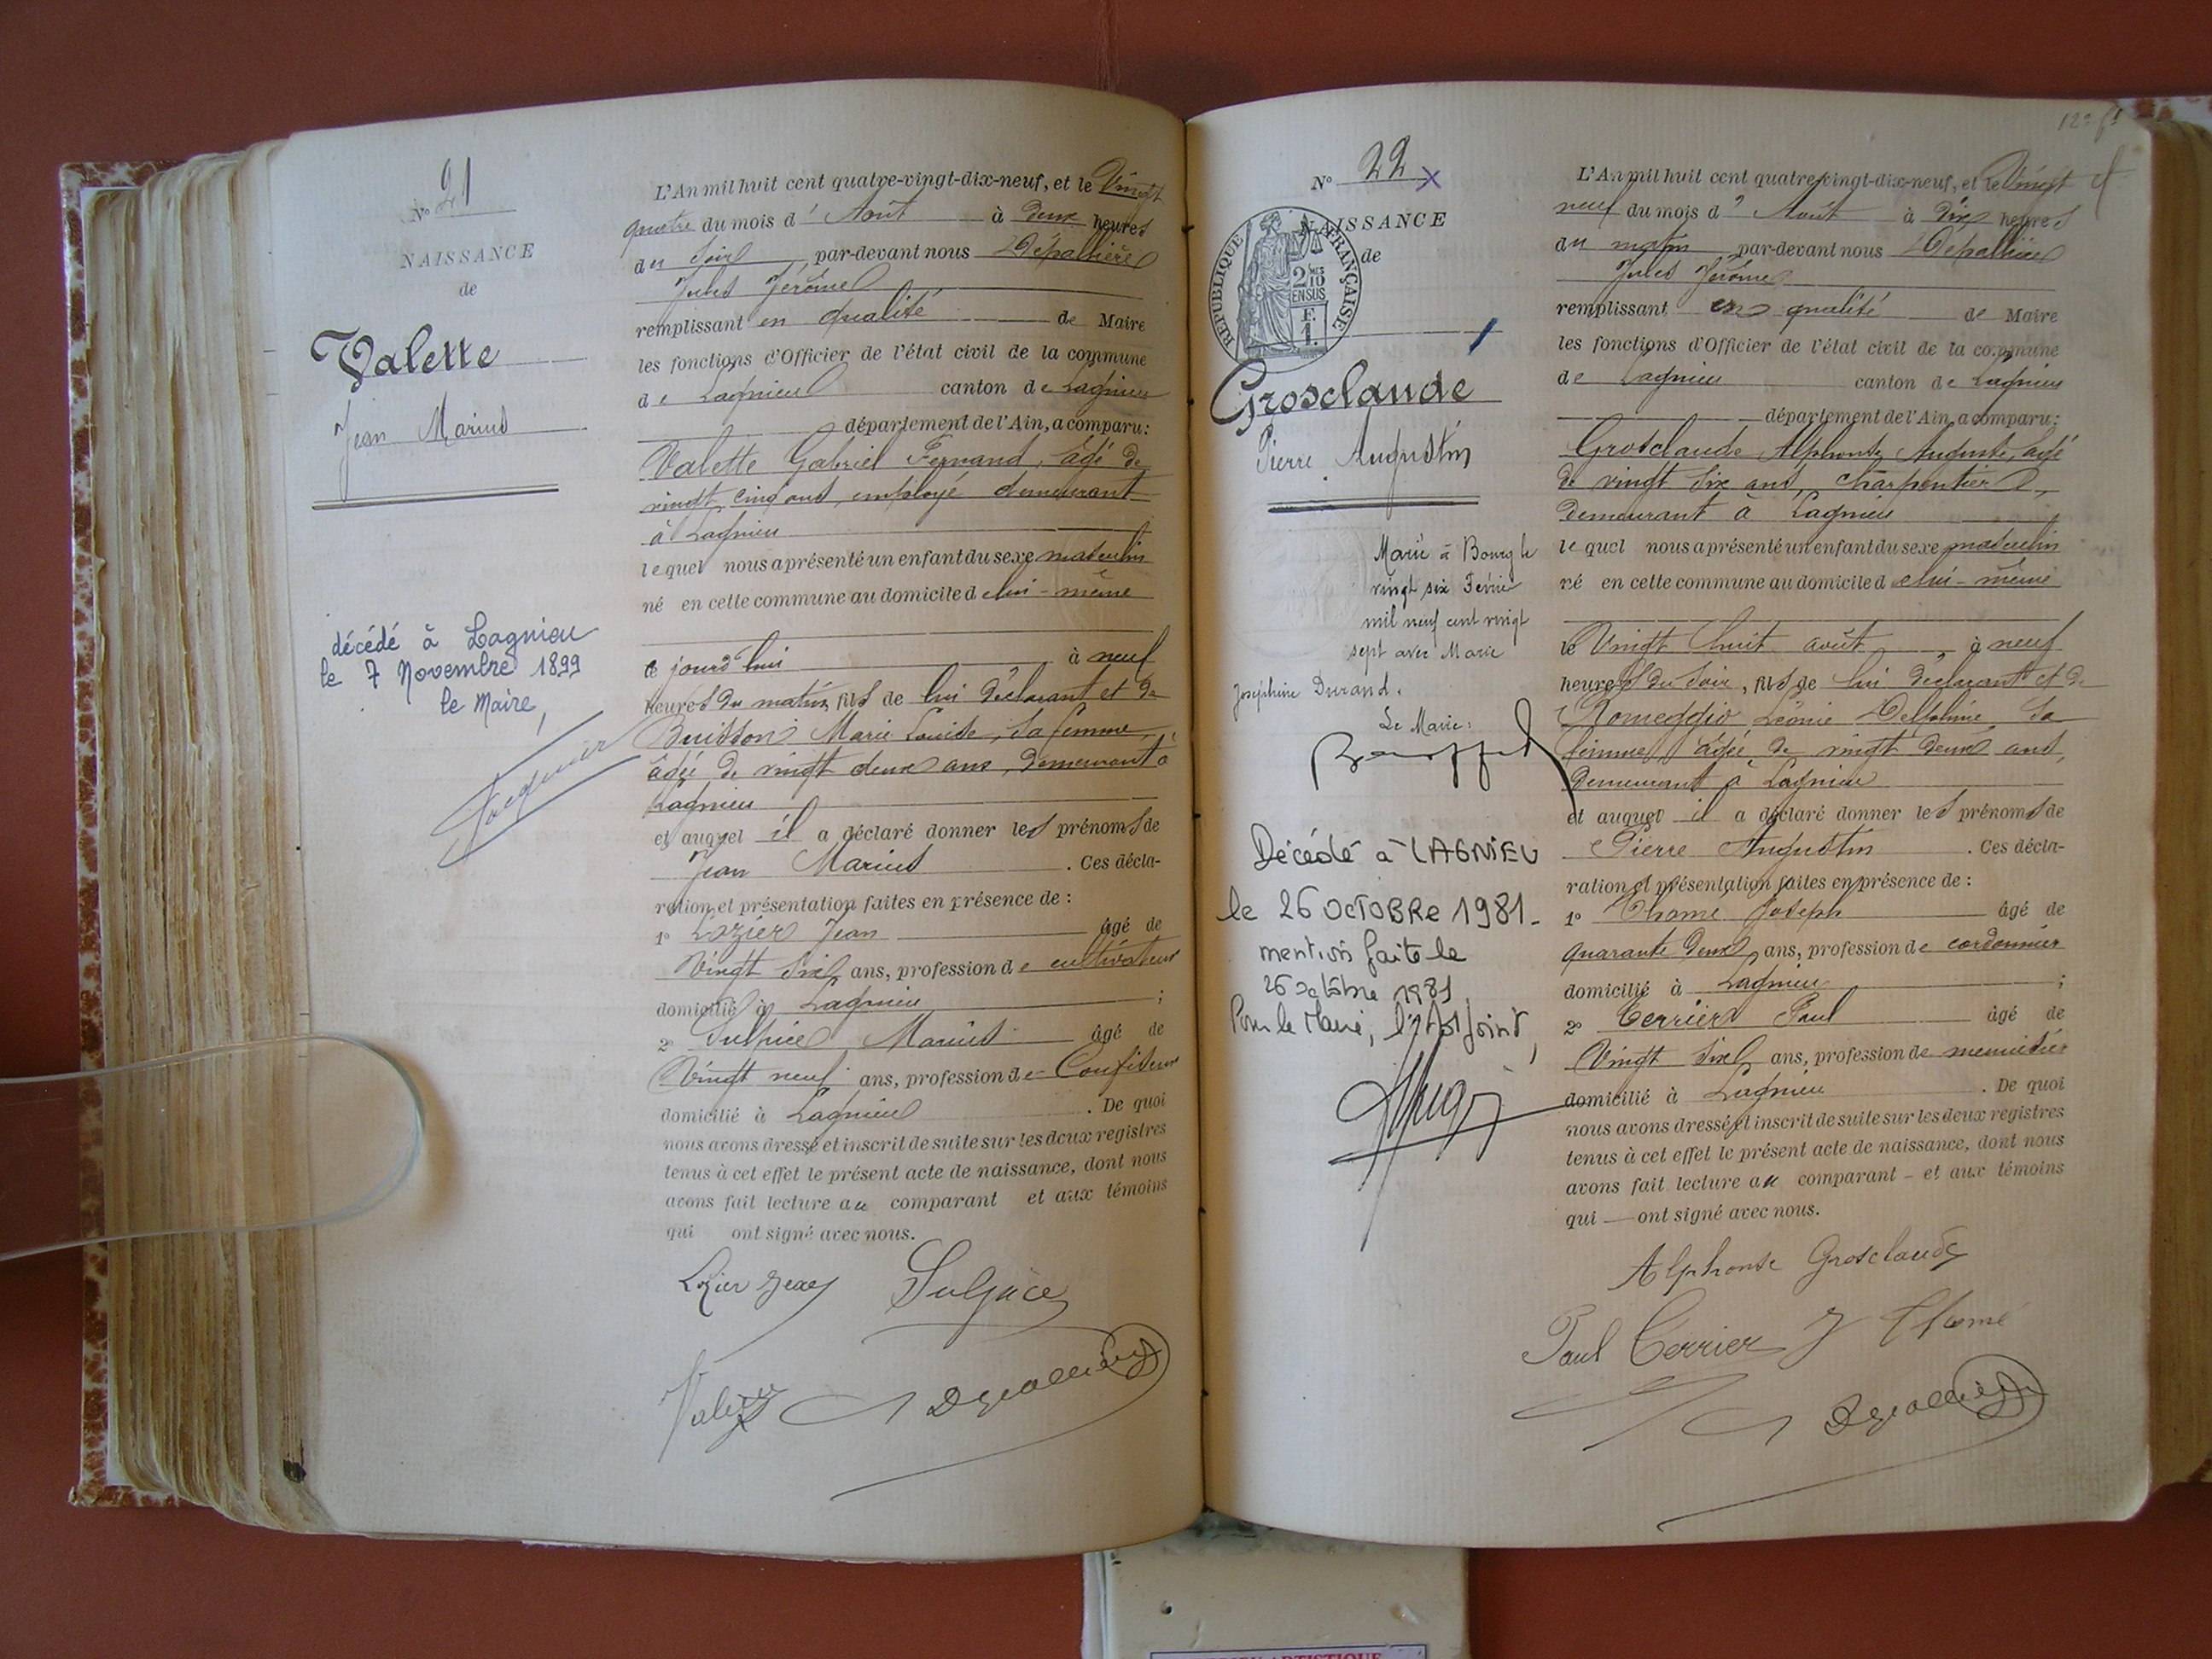 N° 21
NAISSANCE
de
Valette
Jean Marius
décédé à Lagnieu
le 7 Novembre 1899
le Maire,
L'An mil huit cent quatre-vingt-dix-neuf, et le Vingt
quatre du mois d'Août à deux heures
du soir, par-devant nous Dépallière
Jules Jérôme
remplissant en qualité de Maire
les fonctions d'Officier de l'état civil de la commune
de Lagnieu canton de Lagnieu
département de l'Ain, a comparu:
Valette Gabriel Fernand, âgé de
vingt cinq ans, employé demeurant
à Lagnieu
lequel nous a présenté un enfant du sexe masculin
né en cette commune au domicile de lui-même
ce jourd'hui à neuf
heures du matin, fils de lui déclarant et de
Buisson Marie Louise, sa femme,
âgée de vingt deux ans, demeurant à
Lagnieu
et auquel il a déclaré donner les prénoms de
Jean Marius. Ces décla-
ration et présentation faites en présence de :
1° Lozier Jean âgé de
Vingt six ans, profession de cultivateur
domicilié à Lagnieu ;
2° Sulpice Marius âgé de
Vingt neuf ans, profession de Confiseur
domicilié à Lagnieu. De quoi
nous avons dressé et inscrit de suite sur les deux registres
tenus à cet effet le présent acte de naissance, dont nous
avons fait lecture au comparant et aux témoins
qui ont signé avec nous.
Lozier Jean Sulpice
N° 22 x
NAISSANCE
de
REPUBLIQUE FRANÇAISE
2/10 EN SUS
F.
1.
Grosclaude
Pierre Augustin
Marié à Bourg le
vingt six Février
mil neuf cent vingt
sept avec Marie
Joséphine Durand.
Le Maire:
Décédé à LAGNIEU
le 26 OCTOBRE 1981.
mention faite le
26 octobre 1981
Pour le Maire, l'Adjoint,
L'An mil huit cent quatre-vingt-dix-neuf, et le Vingt
neuf du mois d'Août à dix heures
du matin par-devant nous Dépallière
Jules Jérôme
remplissant en qualité de Maire
les fonctions d'Officier de l'état civil de la commune
de Lagnieu canton de Lagnieu
département de l'Ain, a comparu:
Grosclaude Alphonse Auguste, âgé
de vingt six ans, charpentier,
demeurant à Lagnieu
lequel nous a présenté un enfant du sexe masculin
né en cette commune au domicile de lui-même
le Vingt huit août à neuf
heures du soir, fils de lui déclarant et de
Romeggio Léonie Delphine, sa
femme, âgée de vingt deux ans,
demeurant à Lagnieu
et auquel il a déclaré donner les prénoms de
Pierre Augustin. Ces décla-
ration et présentation faites en présence de :
1° Thomé Joseph âgé de
quarante deux ans, profession de cordonnier
domicilié à Lagnieu ;
2° Terrier Paul âgé de
Vingt six ans, profession de menuisier
domicilié à Lagnieu. De quoi
nous avons dressé et inscrit de suite sur les deux registres
tenus à cet effet le présent acte de naissance, dont nous
avons fait lecture au comparant - et aux témoins
qui — ont signé avec nous.
Alphonse Grosclaude
Paul Terrier J Thomé